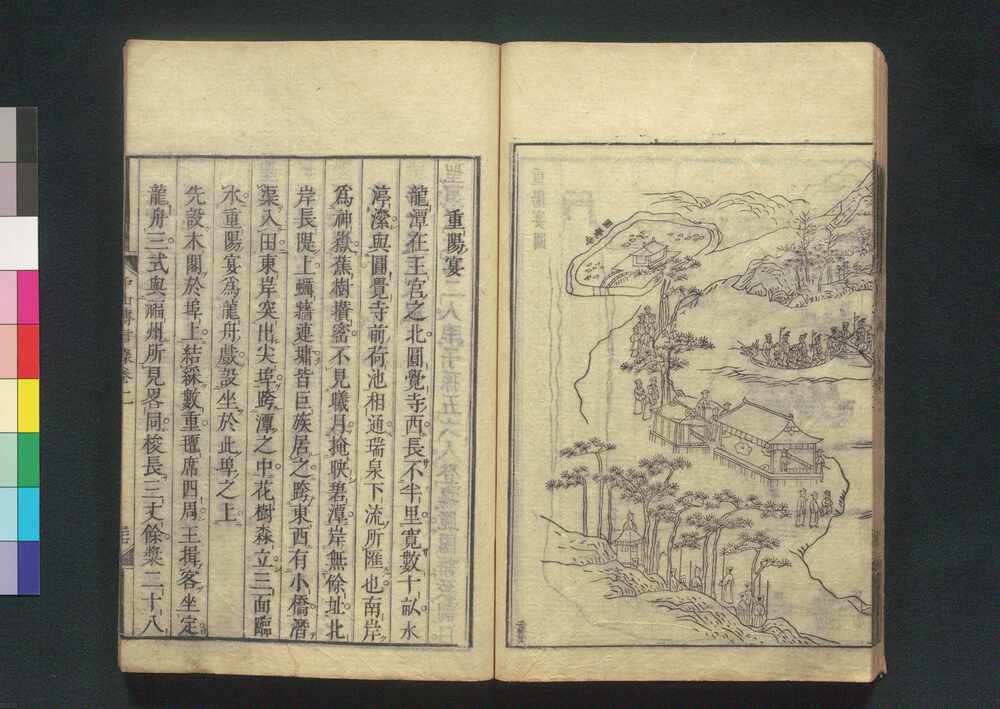 圓覺寺
重陽宴
龍潭在王宮之北圓覺寺西長不半里寬數十畝水
渟瀠與圓覺寺前荷池相通瑞泉下流所匯也南岸
爲神嶽蕉樹攢密不見曦月掩映碧潭岸無餘址北
岸長隄上蠣牆連墉皆巨族居之跨東西有小橋潛
渠入田東岸突出尖埠跨潭之中花樹森立三面臨
水重陽宴爲龍舟戲設坐於此埠之上
先設木閣於埠上結綵數重氊席四周王揖客坐定
龍舟三式與福州所見畧同梭長三丈餘槳二十八
中山傳信錄卷二